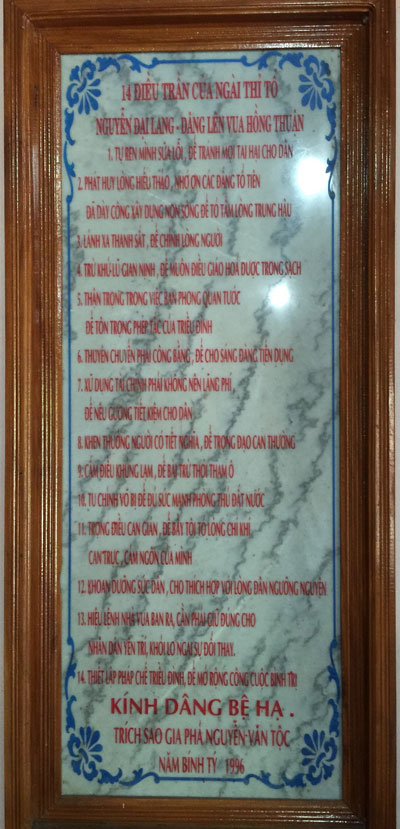 14 ĐIỀU TRẦN CỦA NGÀI THỈ TỔ
NGUYỄN ĐẠI LANG - DÂNG LÊN VUA HỒNG THUẬN
1. TU RÈN MÌNH SỬA LỖI , ĐỂ TRÁNH MỌI TAI HẠI CHO DÂN
2. PHÁT HUY LÒNG HIẾU THẢO , NHỚ ƠN CÁC ĐẤNG TỔ TIÊN
ĐÃ DÀY CÔNG XÂY DỰNG NON SÔNG ĐỂ TỎ TẤM LÒNG TRUNG HẬU
3. LÁNH XA THANH SẮT , ĐỂ CHỈNH LÒNG NGƯỜI
4. TRỪ KHỬ LŨ GIAN NỊNH , ĐỂ MUÔN ĐIỀU GIAO HÒA ĐƯỢC TRONG SẠCH
5. THẬN TRỌNG TRONG VIỆC BAN PHONG QUAN TƯỚC
ĐỂ TÔN TRỌNG PHÉP TẮC CỦA TRIỀU ĐÌNH
6. THUYÊN CHUYỂN PHẢI CÔNG BẰNG , ĐỂ CHO SÁNG ĐÁNG TIẾN DỤNG
7. XỬ DỤNG TÀI CHÍNH PHẢI KHÔNG NÊN LÃNG PHÍ ,
ĐỂ NÊU GƯƠNG TIẾT KIỆM CHO DÂN
8. KHEN THƯỞNG NGƯỜI CÓ TIẾT NGHĨA , ĐỂ TRỌNG ĐẠO CAN THƯỜNG
9. CẤM ĐIỀU KHUNG LẠM , ĐỂ BÀI TRỪ THÓI THAM Ô
10. TU CHỈNH VÕ BỊ ĐỂ ĐỦ SỨC MẠNH PHÒNG THỦ ĐẤT NƯỚC
11. TRỌNG ĐIỀU CAN GIÁN , ĐỂ BẦY TÔI TỎ LÒNG CHÍ KHÍ
CAN TRỰC , CẢM NGÔN CỦA MÌNH
12. KHOAN DƯỠNG SỨC DÂN , CHO THÍCH HỢP VỚI LÒNG DÂN NGƯỠNG NGUYỆN
13. HIỆU LỆNH NHÀ VUA BAN RA, CẦN PHẢI GIỮ ĐÚNG CHO
NHÂN DÂN YÊN TRÍ, KHỎI LO NGẠI SỰ ĐỔI THAY.
14. THIẾT LẬP PHÁP CHẾ TRIỀU ĐÌNH, ĐỂ MỞ RỘNG CÔNG CUỘC BÌNH TRỊ
KÍNH DÂNG BỆ HẠ .
TRÍCH SAO GIA PHẢ NGUYỄN VĂN TỘC
NĂM BÍNH TÝ 1996